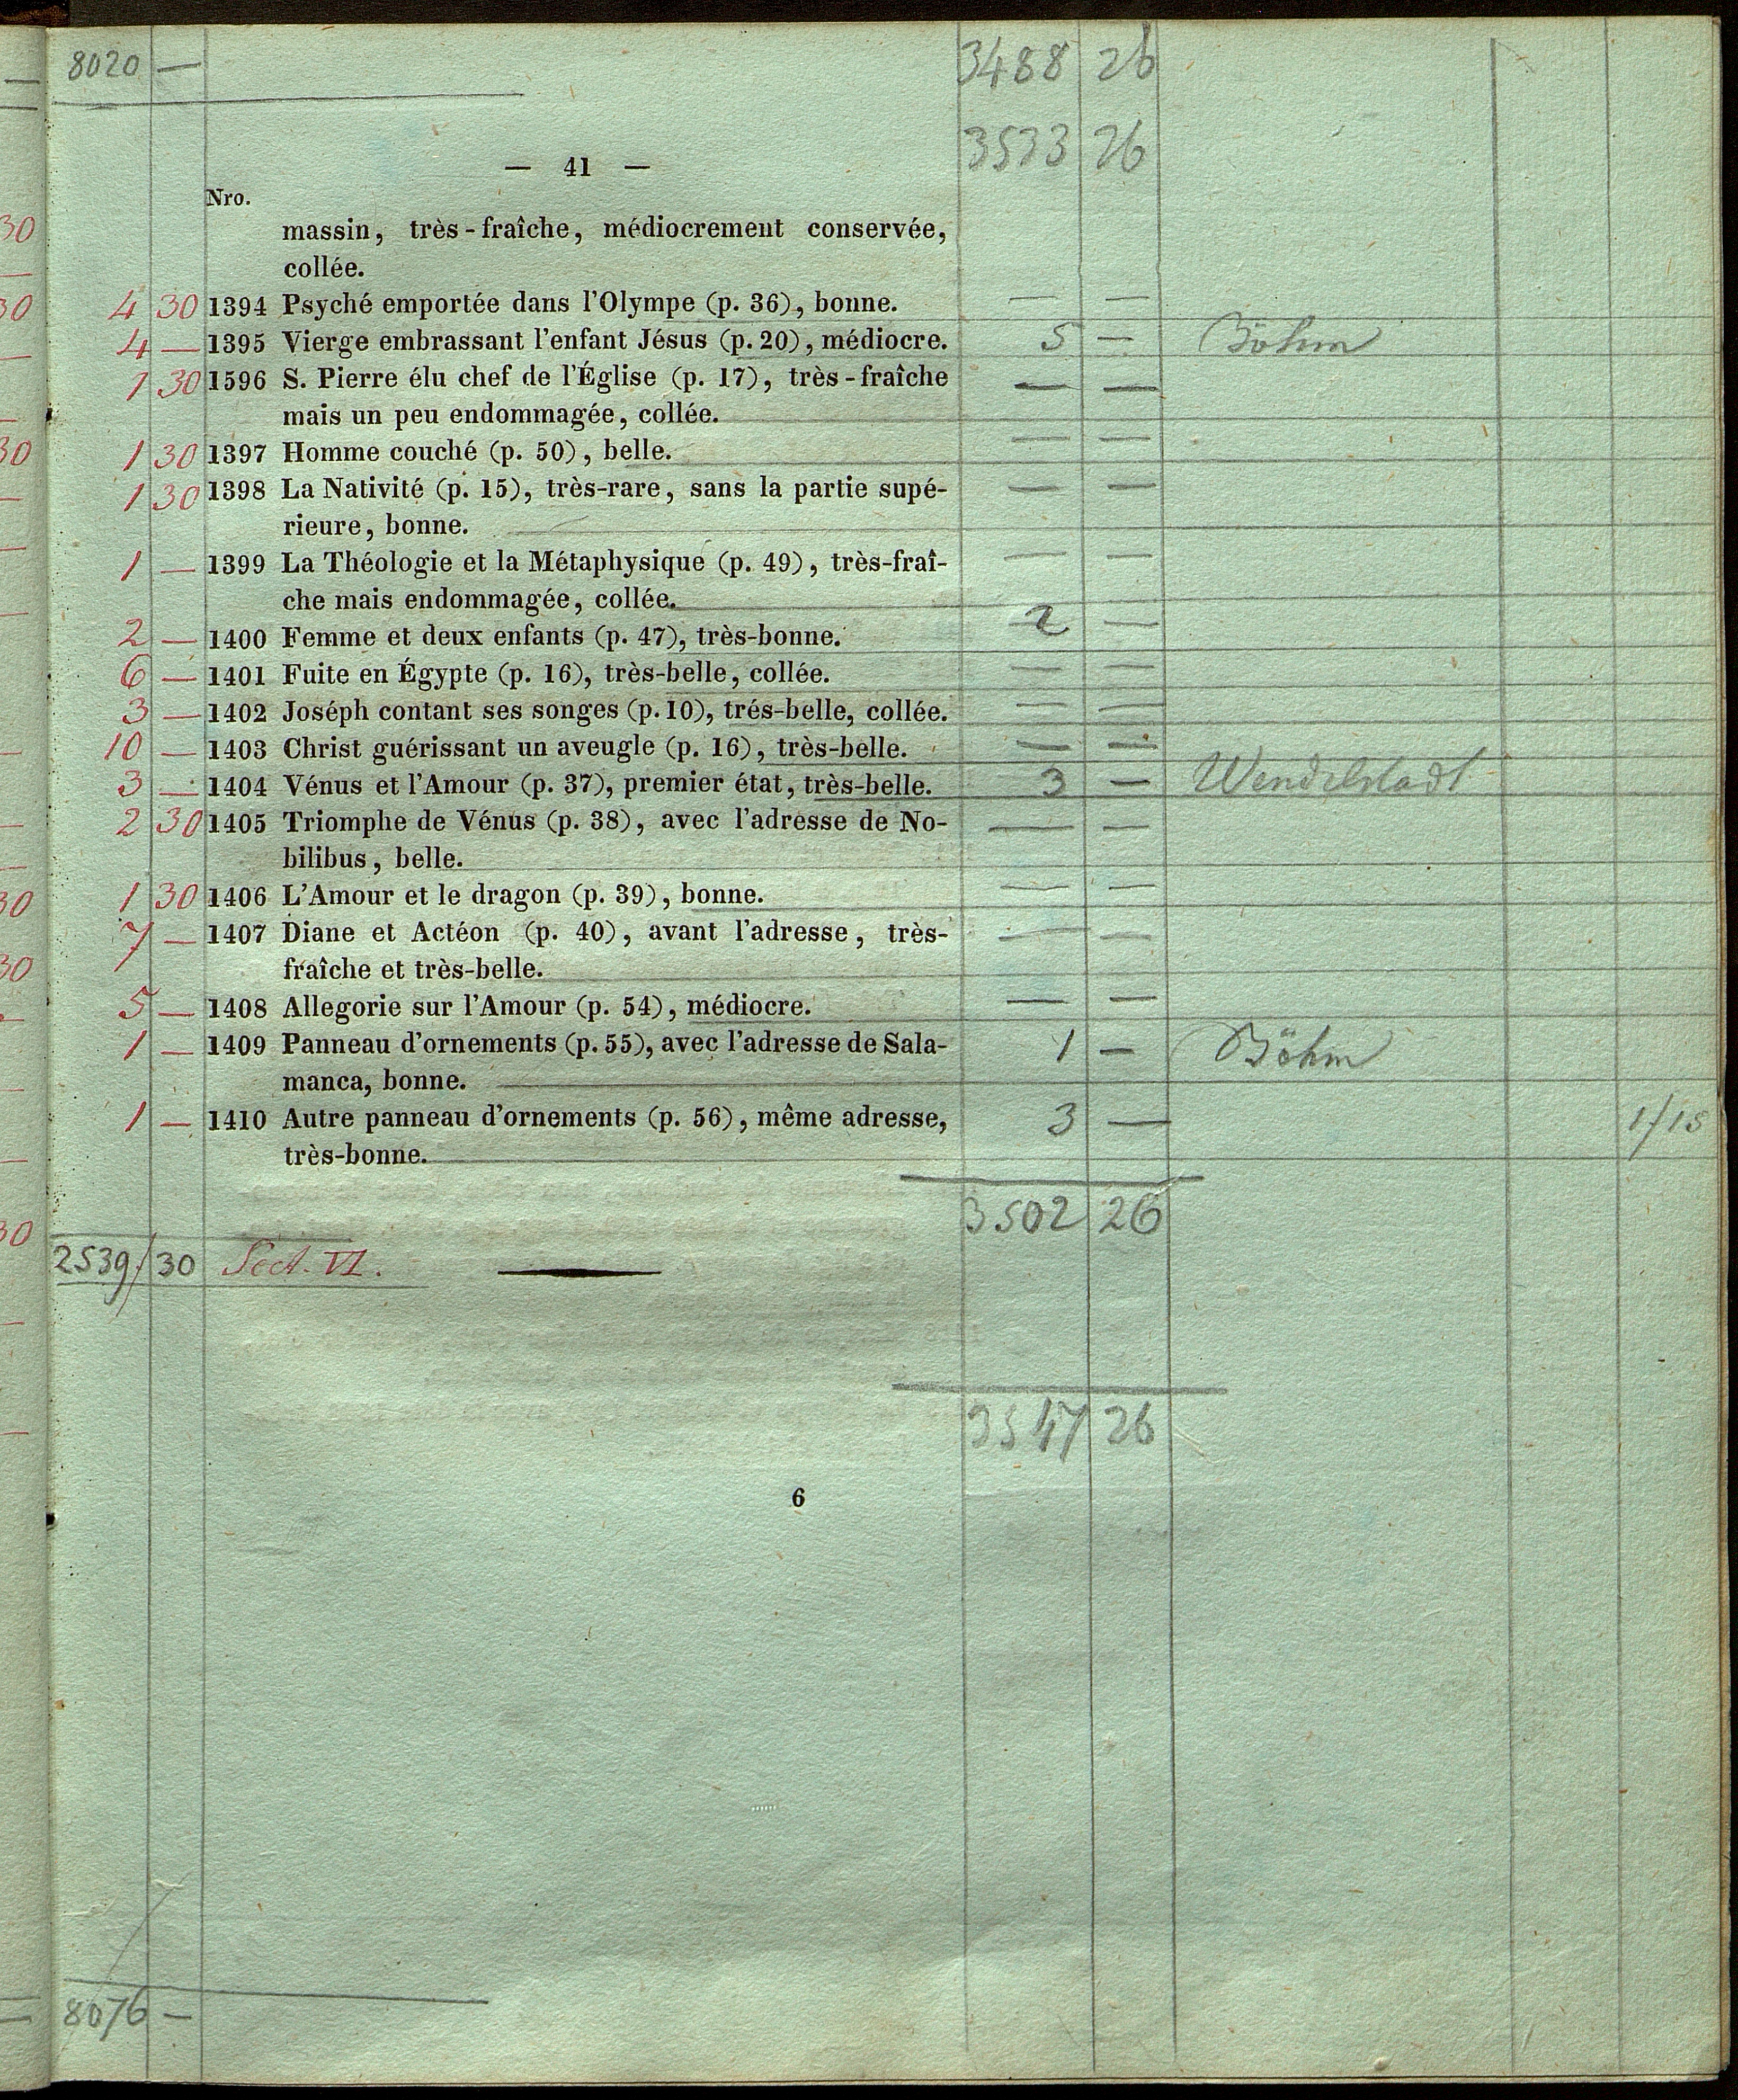 8020 — 3488 26
3533 26
— 41 —
Nro.
massin, très-fraîche, médiocrement conservée,
collée.
4 30 1394 Psyché emportée dans l'Olympe (p. 36), bonne. — —
4 — 1395 Vierge embrassant l'enfant Jésus (p. 20), médiocre. 5 — Böhm
1 30 1596 S. Pierre élu chef de l'Église (p. 17), très-fraîche — —
mais un peu endommagée, collée.
1 30 1397 Homme couché (p. 50), belle. — —
1 30 1398 La Nativité (p. 15), très-rare, sans la partie supé- — —
rieure, bonne.
1 — 1399 La Théologie et la Métaphysique (p. 49), très-fraî- — —
che mais endommagée, collée.
2 — 1400 Femme et deux enfants (p. 47), très-bonne. 2 —
6 — 1401 Fuite en Égypte (p. 16), très-belle, collée. — —
3 — 1402 Joséph contant ses songes (p. 10), trés-belle, collée. — —
10 — 1403 Christ guérissant un aveugle (p. 16), très-belle. — —
3 — 1404 Vénus et l'Amour (p. 37), premier état, très-belle. 3 — Wendelstadt
2 30 1405 Triomphe de Vénus (p. 38), avec l'adresse de No- — —
bilibus, belle.
1 30 1406 L'Amour et le dragon (p. 39), bonne. — —
7 — 1407 Diane et Actéon (p. 40), avant l'adresse, très- — —
fraîche et très-belle.
5 — 1408 Allegorie sur l'Amour (p. 54), médiocre. — —
1 — 1409 Panneau d'ornements (p. 55), avec l'adresse de Sala- 1 — Böhm
manca, bonne.
1 — 1410 Autre panneau d'ornements (p. 56), même adresse, 3 — 1/15
très-bonne.
3502 26
2539/30 Sect. VI.
3547 26
6
8076 —